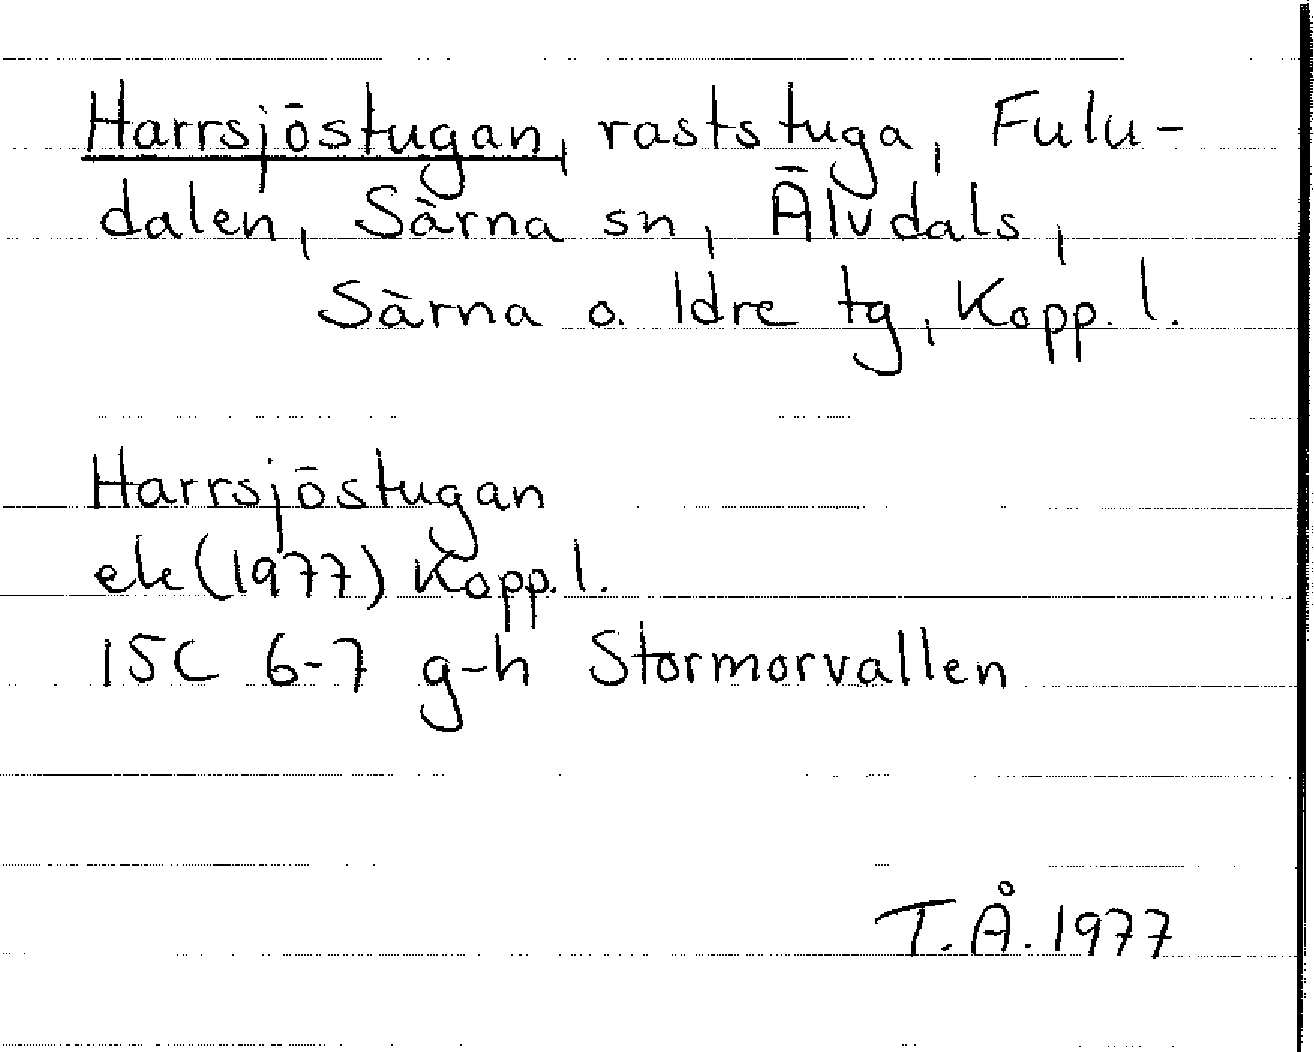 Harrsjöstugan, raststuga, Fulu-
dalen, Särna sn, Älvdals,
Särna o. Idre tg, Kopp. l.
Harrsjöstugan
ek (1977) Kopp. l.
15C 6-7 g-h Stormorvallen
T.Å. 1977